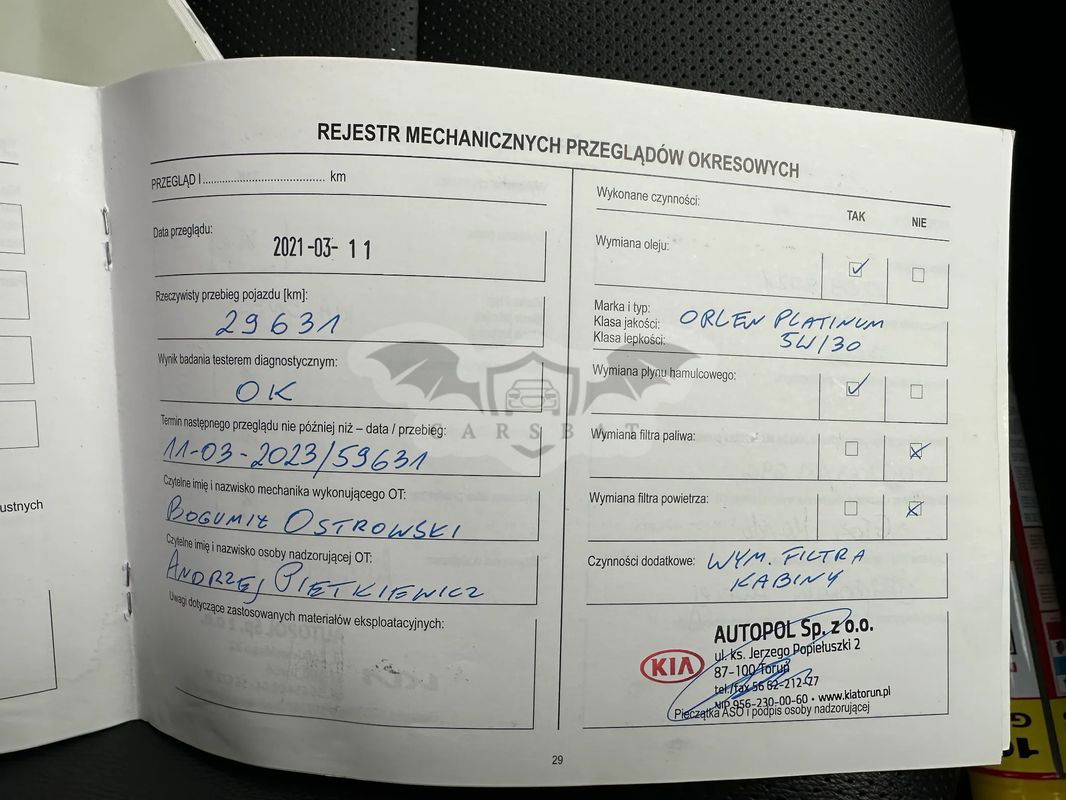 REJESTR MECHANICZNYCH PRZEGLĄDÓW OKRESOWYCH
PRZEGLĄD I .............................. km
Data przeglądu:
2021-03-11
Rzeczywisty przebieg pojazdu [km]:
29631
Wynik badania testerem diagnostycznym:
OK
Termin następnego przeglądu nie później niż – data / przebieg:
11-03-2023/59631
Czytelne imię i nazwisko mechanika wykonującego OT:
BOGUMIŁ OSTROWSKI
Czytelne imię i nazwisko osoby nadzorującej OT:
ANDRZEJ PIĘTKIEWICZ
Uwagi dotyczące zastosowanych materiałów eksploatacyjnych:
Wykonane czynności:
TAK NIE
Wymiana oleju:
Marka i typ: ORLEN PLATINUM
Klasa jakości:
Klasa lepkości: 5W/30
Wymiana płynu hamulcowego:
Wymiana filtra paliwa:
Wymiana filtra powietrza:
Czynności dodatkowe: WYM. FILTRA
KABINY
KIA
AUTOPOL Sp. z o.o.
ul. ks. Jerzego Popiełuszki 2
87-100 Toruń
tel./fax 56 62-212-77
NIP 956-230-00-60 • www.kiatorun.pl
Pieczątka ASO i podpis osoby nadzorującej
29
ustnych
CARSBAT